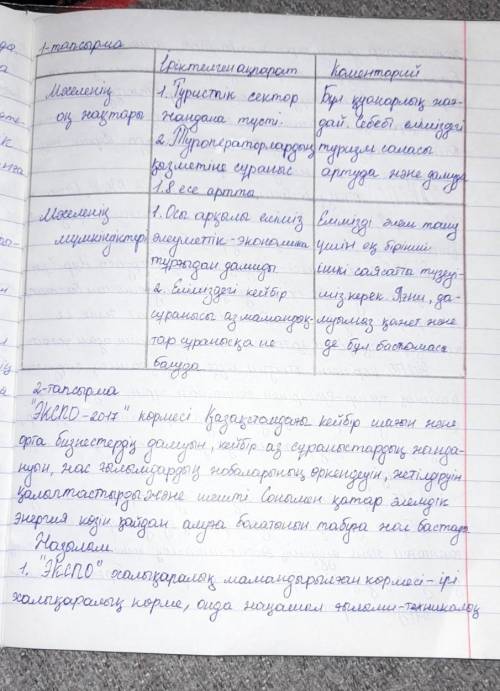 1-тапсырма
Іріктелген ақпарат
Коментарий
Мәселенің
оң жақтары
1. Туристік сектор
жандана түсті.
2. Туроператорлардың
қызметіне сұраныс
1.8 есе артты
Бұл қуанарлық жағ-
дай. Себебі еліміздегі
туризм саласы
артуда және дамуда
Мәселенің
мүмкіндіктері
1. Осы арқылы еліміз
әлеуметтік-экономика
тұрғыдан дамиды
2. Еліміздегі кейбір
сұранысы аз мамандық-
тар сұранысқа ие
болуда
Елімізді әлем тану
үшін ең бірінші
ішкі саясатты түзеу-
іміз керек. Яғни, да-
муымыз қажет және
де бұл бастамасы
2-тапсырма
"ЭКСПО-2017" көрмесі Қазақстандағы кейбір шағын және
орта бизнестердің дамуын, кейбір аз сұраныстардың жанда-
нуын, жас ғылымдардың жобаларының өркендеуін, жетілдіруін
қалыптастырды және шешті. Сонымен қатар әлемдік
энергия көзін қайдан алуға болатынын табуға жол бастады
Жазылым
1. "ЭКСПО" халықаралық мамандырылған көрмесі - ірі
халықаралық көрме, онда жаңашыл ғылыми-техникалық